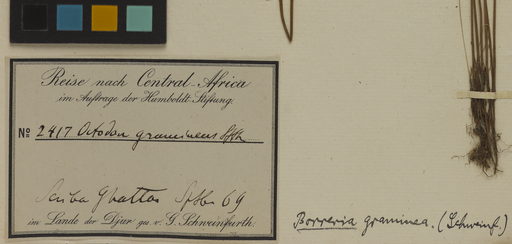 Reise nach Central-Afrika
im Auftrage der Humboldt-Stiftung.
No 2417 Octodon gramineus Schfth
Seriba Ghattas 69
im Lande der Djur ges. v. G. Schweinfurth.
Borreria graminea. (Schweinf.)